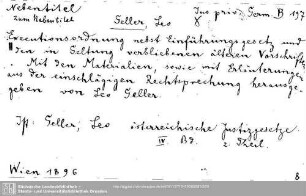 Nebentitel
zum Nebentitel Geller, Leo Jus priv. Germ. B 197
8
Executionsordnung nebst Einführungsgesetz und
den in Geltung verbliebenen älteren Vorschrift
. Mit den Materialien, sowie mit Erläuterungen
aus der einschlägigen Rechtsprechung herausge-
geben von Leo Geller.
Geller, Leo österreichische Justizgesetze
IV Bd. 2. Theil.
Wien 1896 8